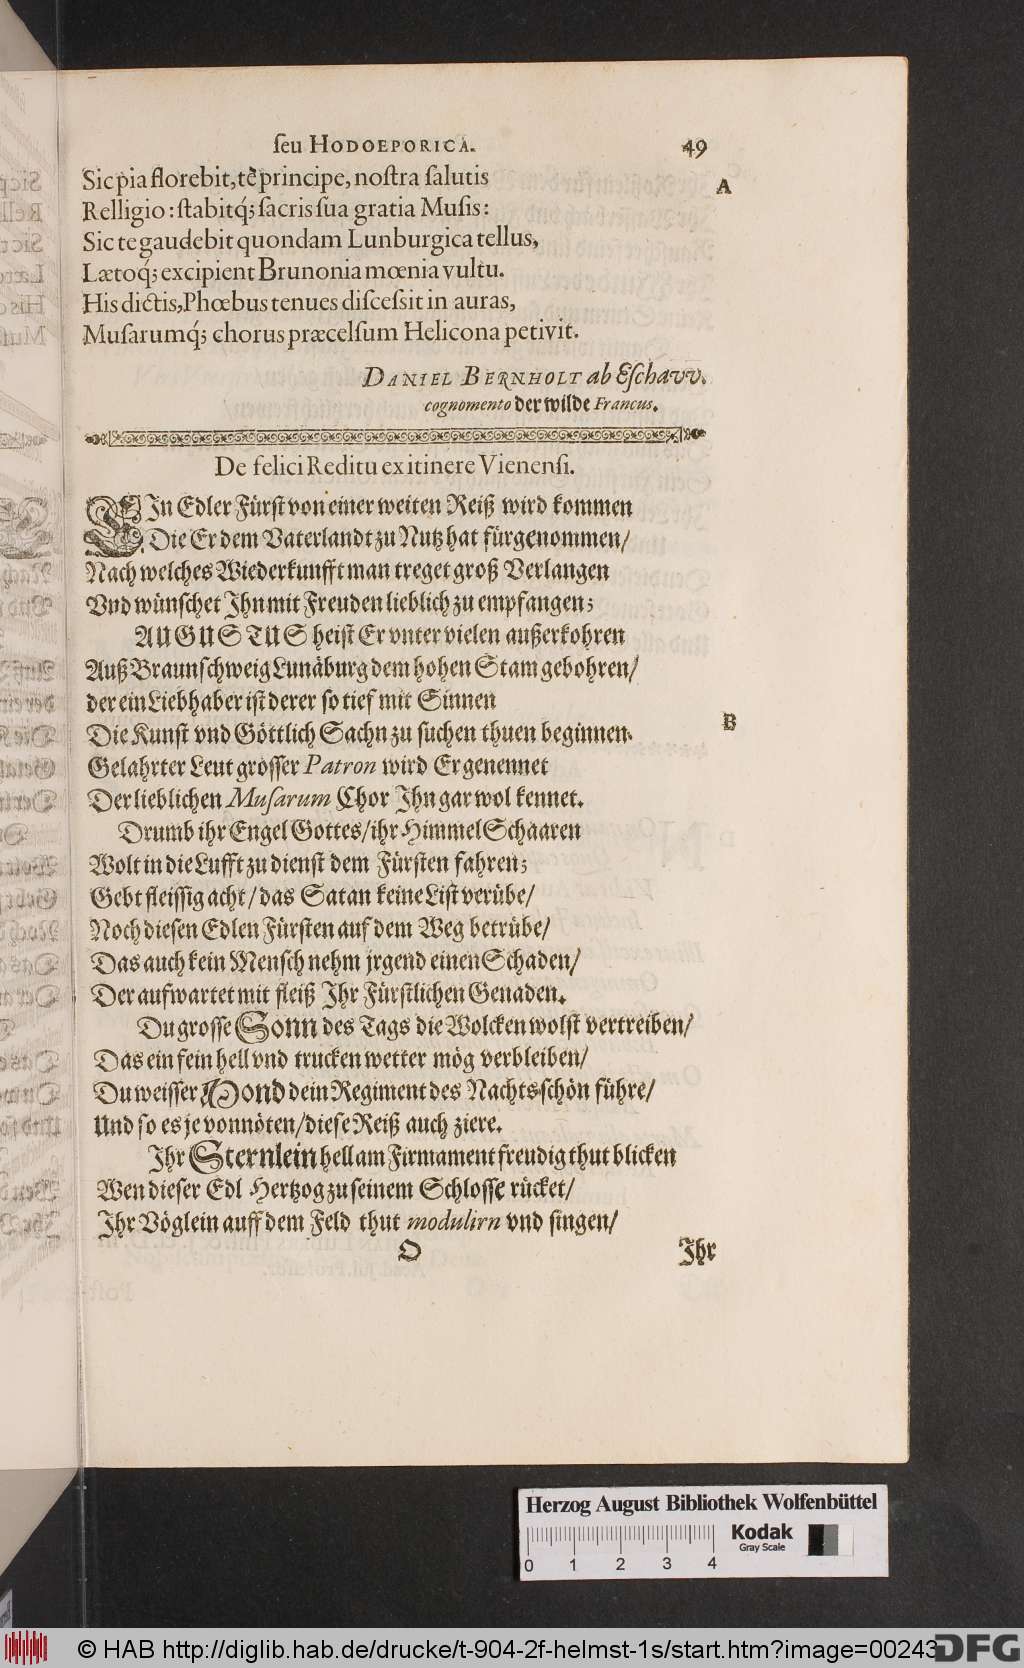 ſeu HODOEPORICA. 49
Sic pia florebit, tẽ principe, noſtra ſalutis A
Relligio: ſtabitq́; ſacris ſua gratia Muſis:
Sic te gaudebit quondam Lunburgica tellus,
Lætoq́; excipient Brunonia mœnia vultu.
His dictis, Phœbus tenues diſceſsit in auras,
Muſarumq́; chorus præcelſum Helicona petivit.
DANIEL BERNHOLT ab Eſchavv.
cognomento der wilde Francus.
De felici Reditu ex itinere Vienenſi.
EIn Edler Fürſt von einer weiten Reiß wird kommen
Die Er dem Vaterlandt zu Nutz hat fürgenommen/
Nach welches Wiederkunfft man treget groß Verlangen
Vnd wünſchet Ihn mit Freuden lieblich zu empfangen;
AUGUSTUS heiſt Er vnter vielen außerkohren
Auß Braunſchweig Lunäburg dem hohen Stam gebohren/
der ein Liebhaber iſt derer ſo tief mit Sinnen
Die Kunſt vnd Göttlich Sachn zu ſuchen thuen beginnen. B
Gelahrter Leut groſſer Patron wird Er genennet
Der lieblichen Muſarum Chor Ihn gar wol kennet.
Drumb ihr Engel Gottes/ ihr Himmel Schaaren
Wolt in die Lufft zu dienſt dem Fürſten fahren;
Gebt fleiſſig acht/ das Satan keine Liſt verübe/
Noch dieſen Edlen Fürſten auf dem Weg betrübe/
Das auch kein Menſch nehm jrgend einen Schaden/
Der aufwartet mit fleiß Ihr Fürſtlichen Genaden.
Du groſſe Sonn des Tags die Wolcken wolſt vertreiben/
Das ein fein hell vnd trucken wetter mög verbleiben/
Du weiſſer Mond dein Regiment des Nachts ſchön führe/
Und ſo es je vonnöten/ dieſe Reiß auch ziere.
Ihr Sternlein hell am Firmament freudig thut blicken
Wen dieſer Edl Hertzog zu ſeinem Schloſſe rücket/
Ihr Vöglein auff dem Feld thut modulirn vnd ſingen/
O Ihr
Herzog August Bibliothek Wolfenbüttel
0 1 2 3 4
Kodak
Gray Scale
© HAB http://diglib.hab.de/drucke/t-904-2f-helmst-1s/start.htm?image=00243
DFG